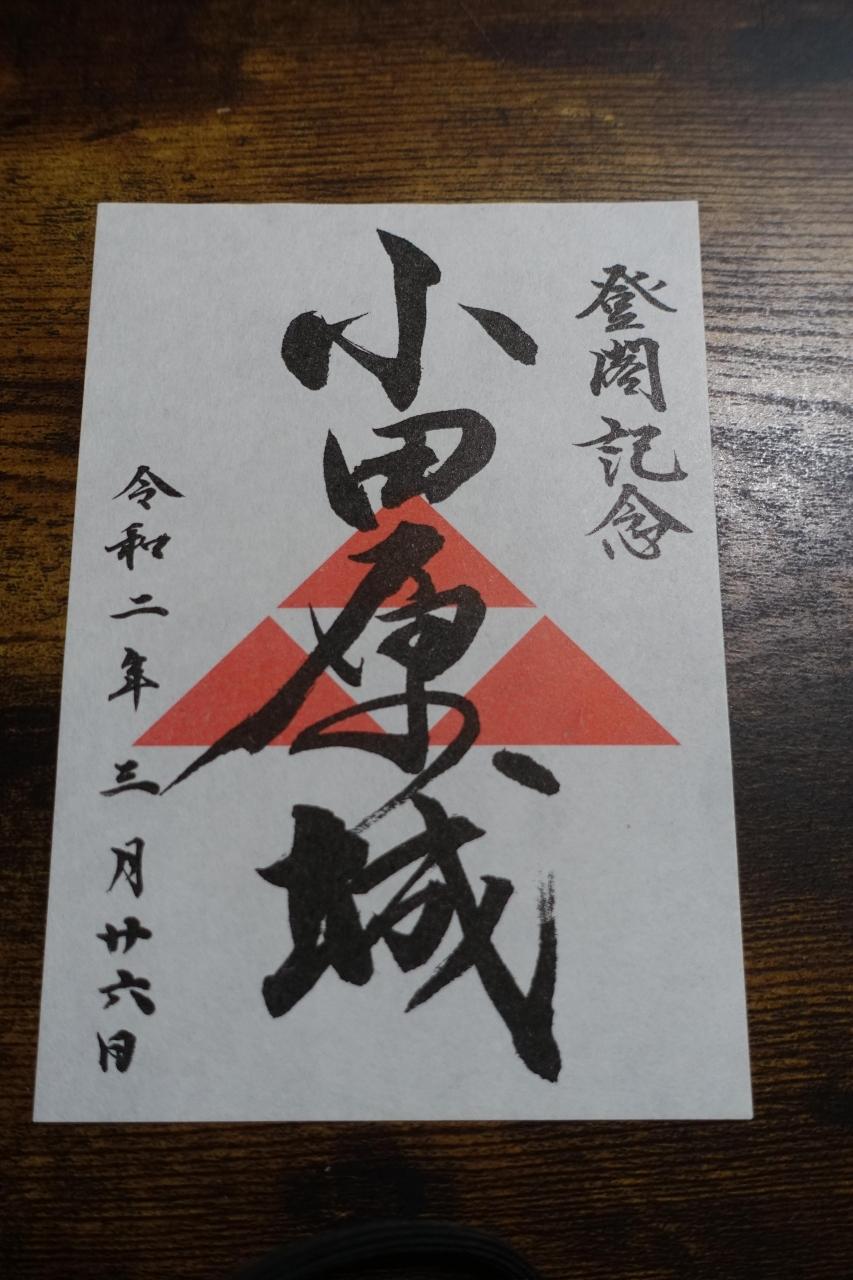 登閣記念
小田原城
令和二年三月廿六日